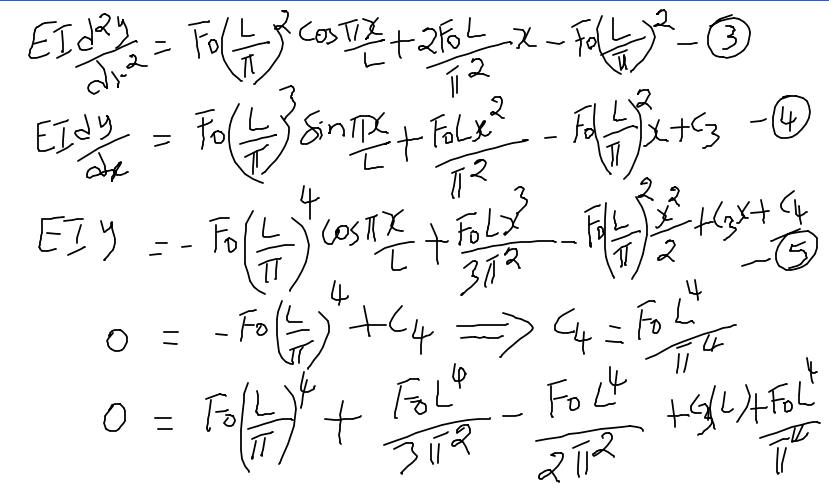 EI d²y/dx² = F₀(L/π)² cos πx/L + 2F₀L/π² x − F₀(L/π)² − ③
EI dy/dx = F₀(L/π)³ sin πx/L + F₀Lx²/π² − F₀(L/π)² x + C₃ − ④
EI y = − F₀(L/π)⁴ cos πx/L + F₀Lx³/3π² − F₀(L/π)² x²/2 + C₃x + C₄ − ⑤
0 = − F₀(L/π)⁴ + C₄ ⟹ C₄ = F₀L⁴/π⁴
0 = F₀(L/π)⁴ + F₀L⁴/3π² − F₀L⁴/2π² + C₃(L) + F₀L⁴/π⁴